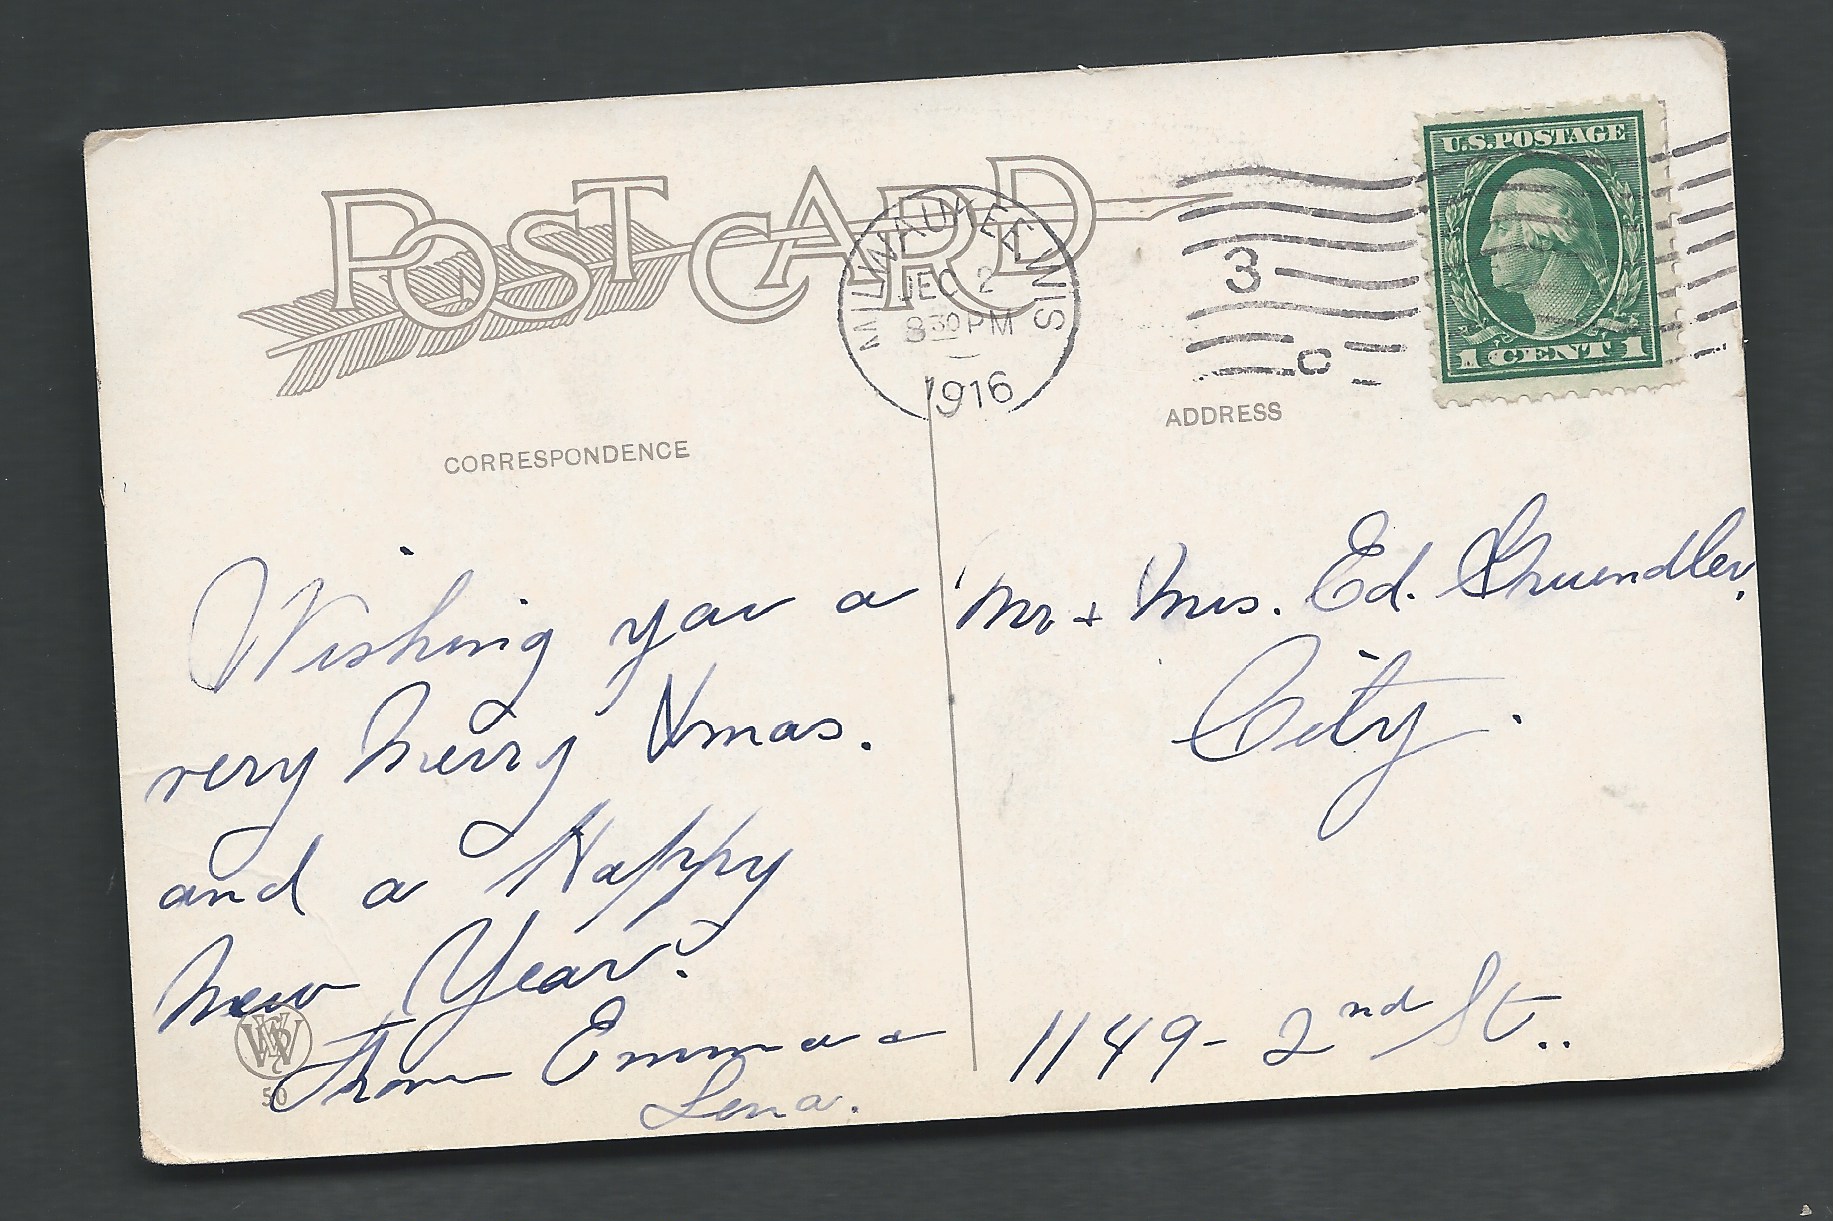 POST CARD
MILWAUKEE WIS
DEC 2
8 30 PM
1916
3
C
U.S. POSTAGE
1 CENT 1
CORRESPONDENCE
ADDRESS
Wishing you a
very Merry Xmas.
and a Happy
New Year.
From Emma &
Lena.
50
Mr + Mrs. Ed. Gruendler,
City.
1149 - 2nd St..